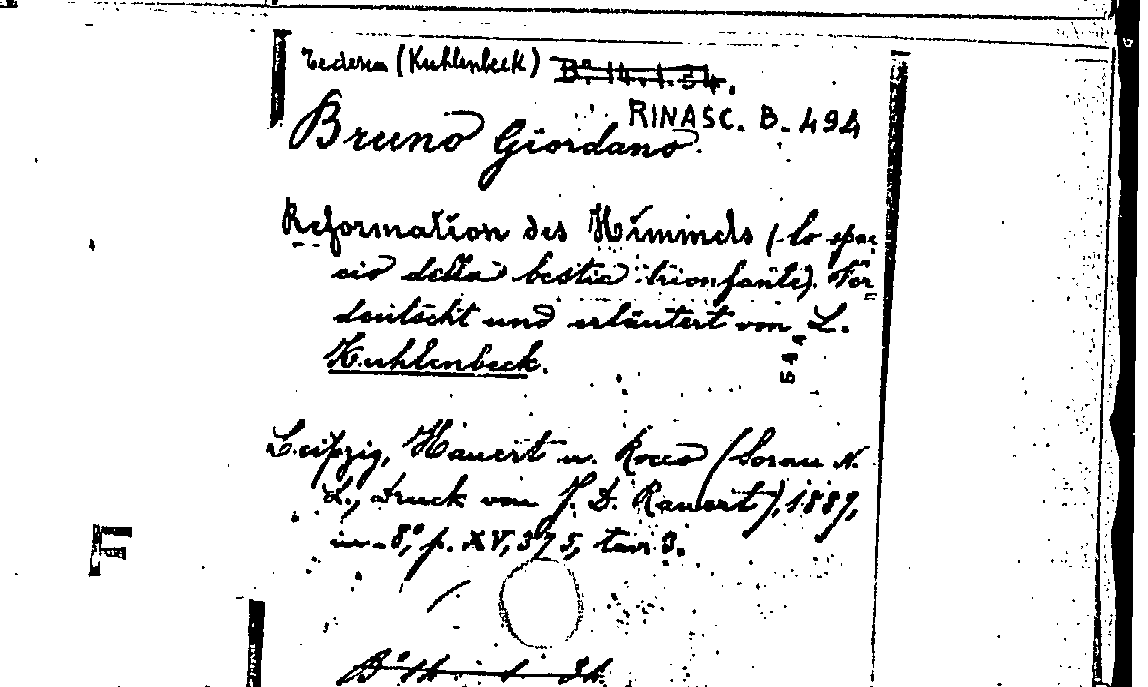 Tedesca (Kuhlenbeck) B° 14.1.34.
RINASC. B. 494
Bruno Giordano.
Reformation des Himmels (lo spac=
cio della bestia trionfante). Ver=
deutscht und erläutert von L.
Kuhlenbeck.
544
Leipzig, Hauert u. Rocco (Sorau N.
L., druck von J. D. Rauert), 1889,
in-8°, p. XV, 375, tav. 3.
F
B° 14. 1. 34.